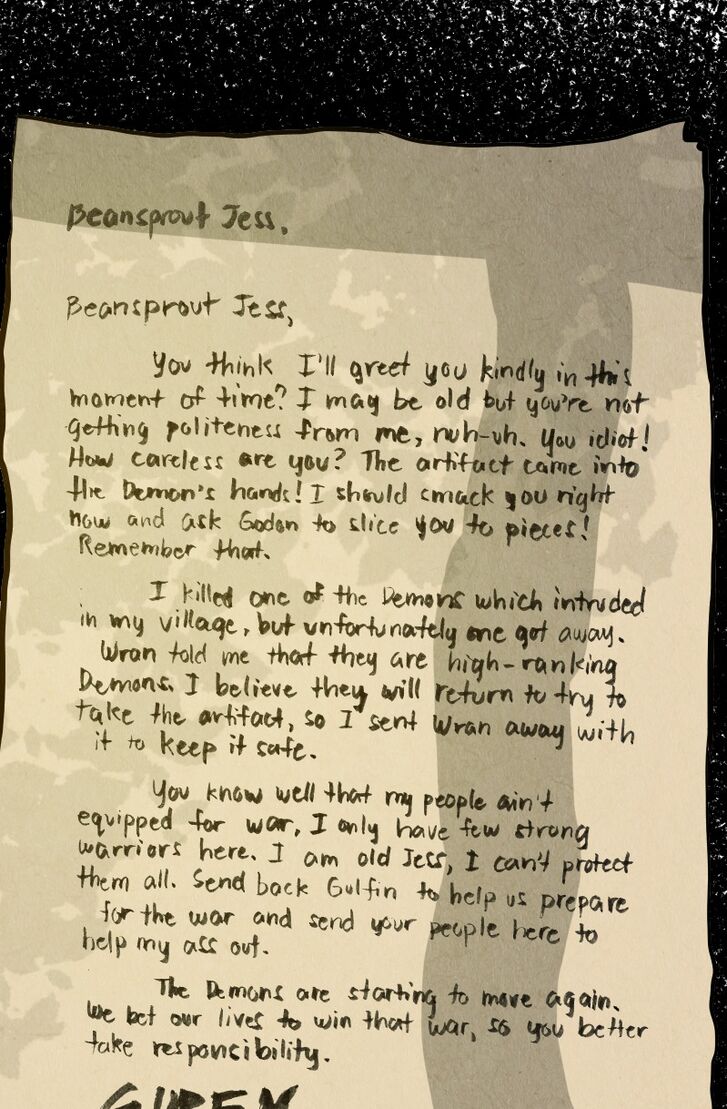 Beansprout Jess,
Beansprout Jess,
You think I'll greet you kindly in this
moment of time? I may be old but you're not
getting politeness from me, nuh-uh. You idiot!
How careless are you? The artifact came into
the Demon's hands! I should smack you right
now and ask Godon to slice you to pieces!
Remember that.
I killed one of the Demons which intruded
in my village, but unfortunately one got away.
Wran told me that they are high-ranking
Demons. I believe they will return to try to
take the artifact, so I sent Wran away with
it to keep it safe.
You know well that my people ain't
equipped for war, I only have few strong
warriors here. I am old Jess, I can't protect
them all. Send back Gulfin to help us prepare
for the war and send your people here to
help my ass out.
The Demons are starting to move again.
We bet our lives to win that war, so you better
take responsibility.